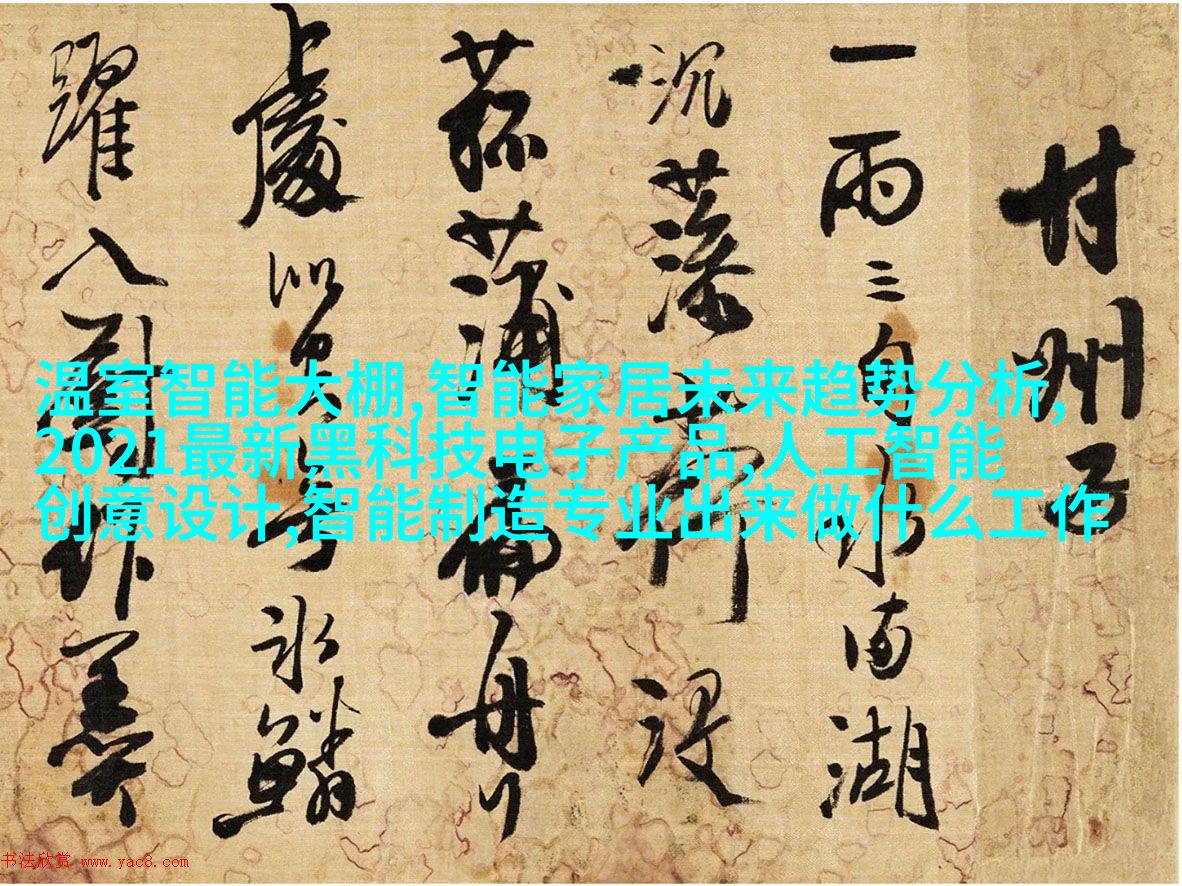 甘州
一雨三自水南湖
沉藻荇没
菰蒲扁舟
上處冰鱗
躍入羹
温室智能大棚,智能家居未来趋势分析,
2021最新黑科技电子产品,人工智能
创意设计,智能制造专业出来做什么工作
书法欣赏 www.yac8.com